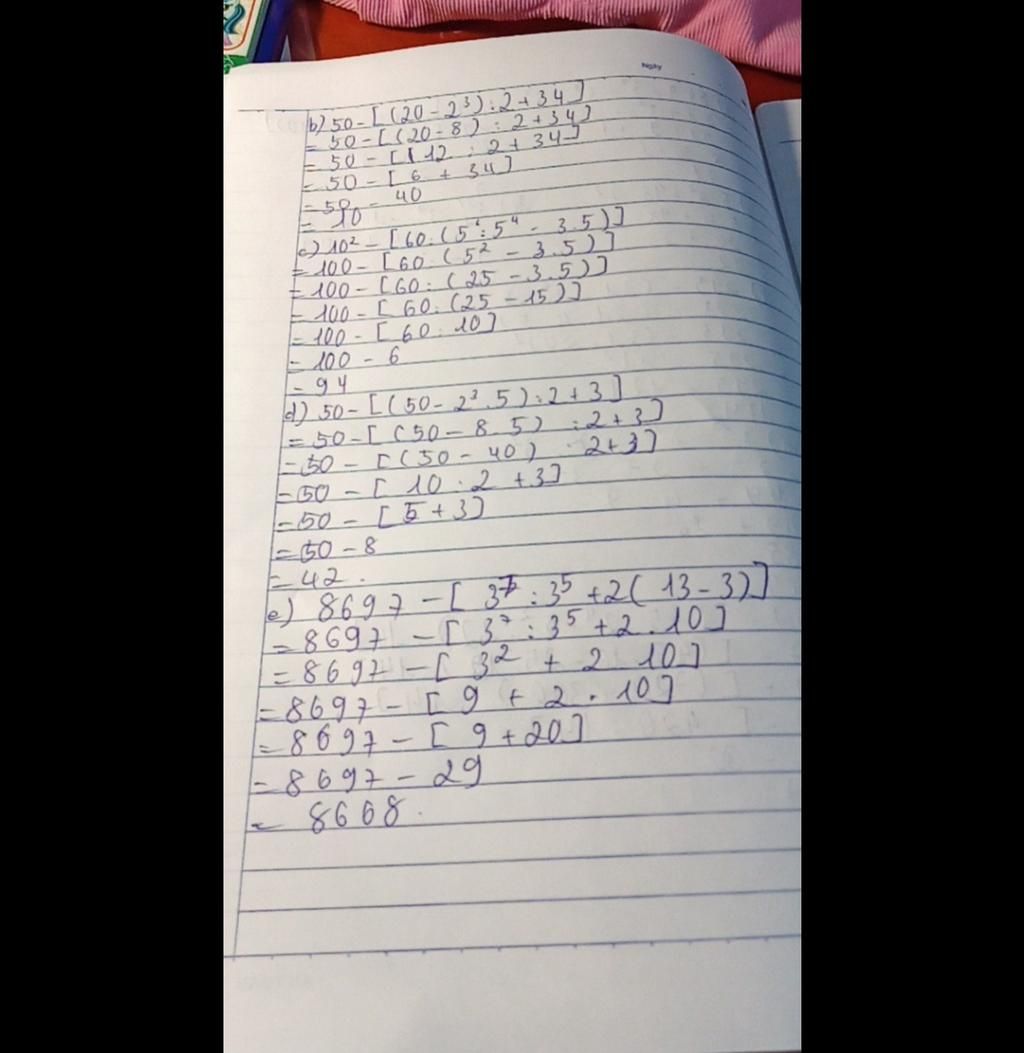 Ngày
b) 50 - [(20 - 2³) : 2 + 34]
= 50 - [(20 - 8) : 2 + 34]
= 50 - [12 : 2 + 34]
= 50 - [6 + 34]
= 50 - 40
= 10
c) 10² - [60 : (5⁶ : 5⁴ - 3.5)]
= 100 - [60 : (5² - 3.5)]
= 100 - [60 : (25 - 3.5)]
= 100 - [60 : (25 - 15)]
= 100 - [60 : 10]
= 100 - 6
= 94
d) 50 - [(50 - 2³.5) : 2 + 3]
= 50 - [(50 - 8.5) : 2 + 3]
= 50 - [(50 - 40) : 2 + 3]
= 50 - [10 : 2 + 3]
= 50 - [5 + 3]
= 50 - 8
= 42.
e) 8697 - [3⁷ : 3⁵ + 2(13 - 3)]
= 8697 - [3⁷ : 3⁵ + 2.10]
= 8697 - [3² + 2 10]
= 8697 - [9 + 2.10]
= 8697 - [9 + 20]
= 8697 - 29
= 8668.